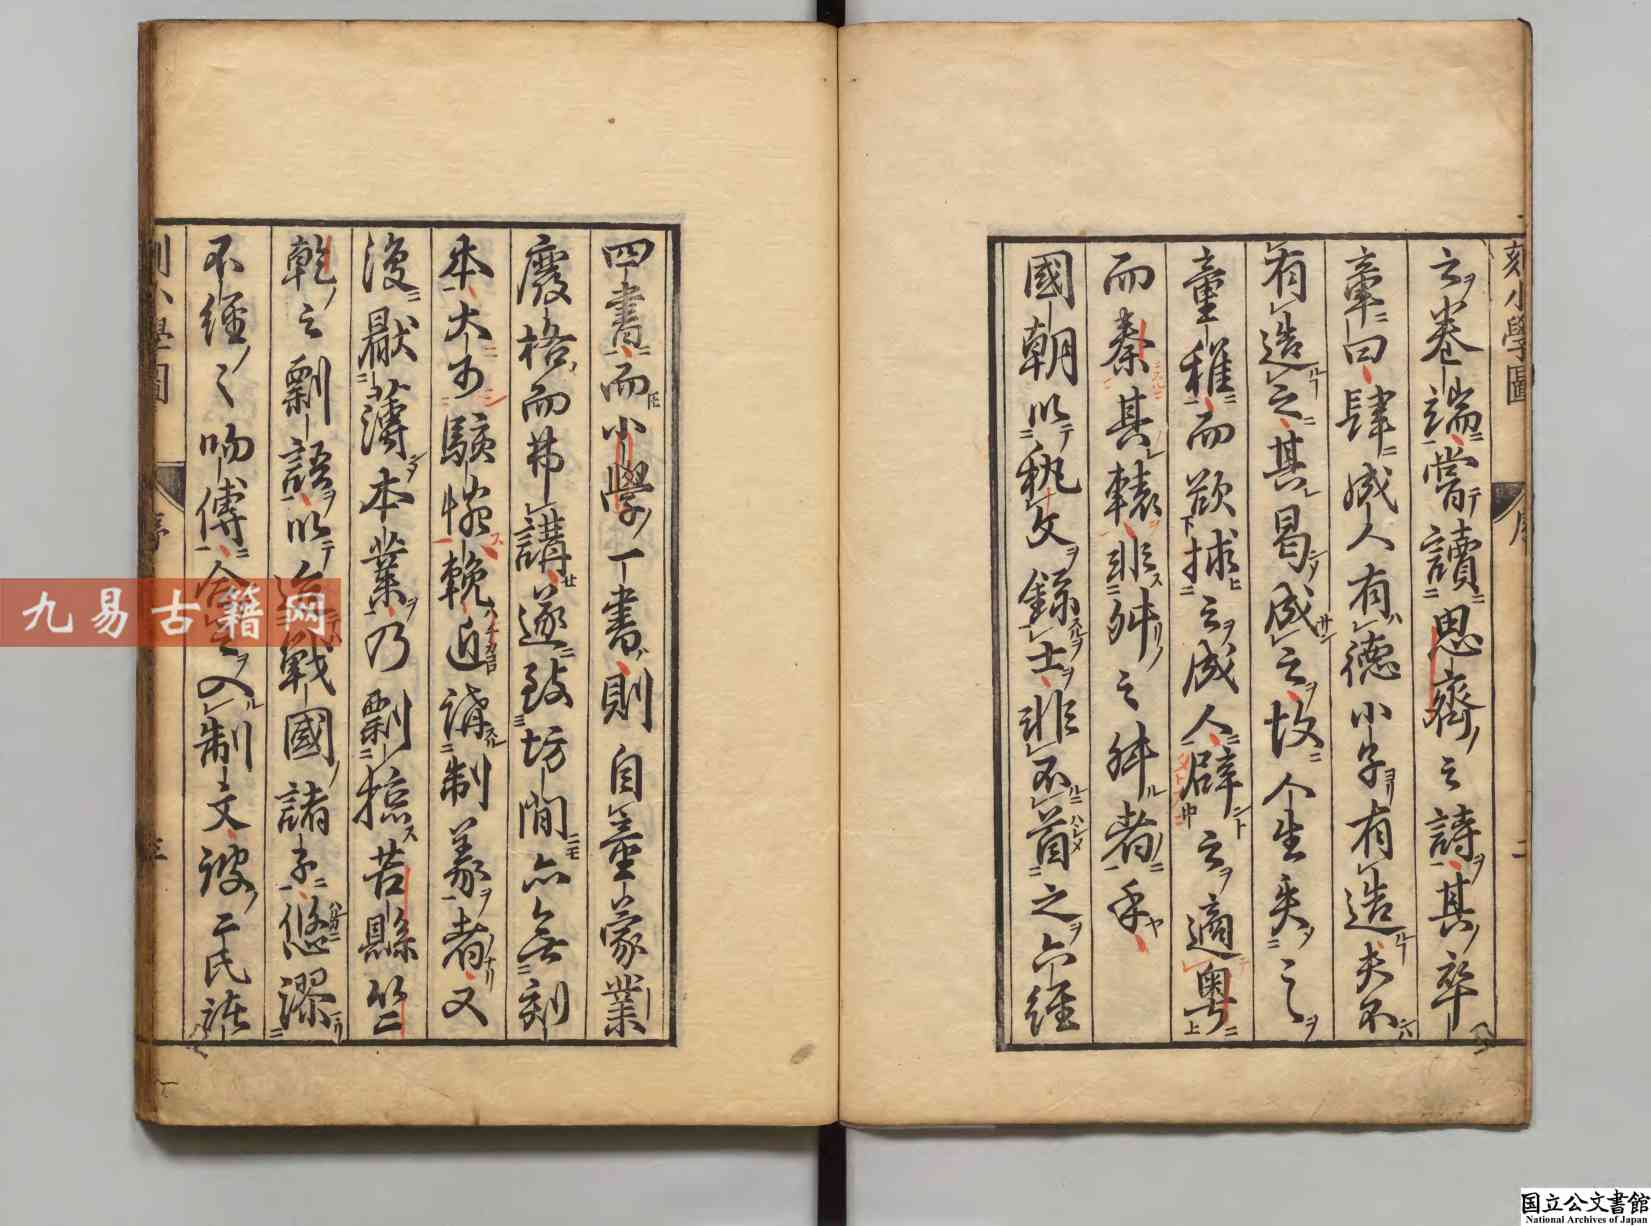 刻小學圖
序
二
之卷端嘗讀思齊之詩其卒
章曰肆成人有德小子有造夫不
有造之其曷成之故人生矣之
童稚而欲求之成人辟之適粤
而秦其轅非舛之舛者乎
國朝以執文錄士非不首之六經
四書而小學一書則自童蒙業
廢格而弗講遂致坊間亦無刻
本大可駭惋輓近講制義者又
復厭薄本業乃剽掠苦縣竺
乾之剽語以迨戰國諸子悠謬
不經之吻傅合之入制文彼二氏諸
序
三
九易古籍网
国立公文書館
National Archives of Japan